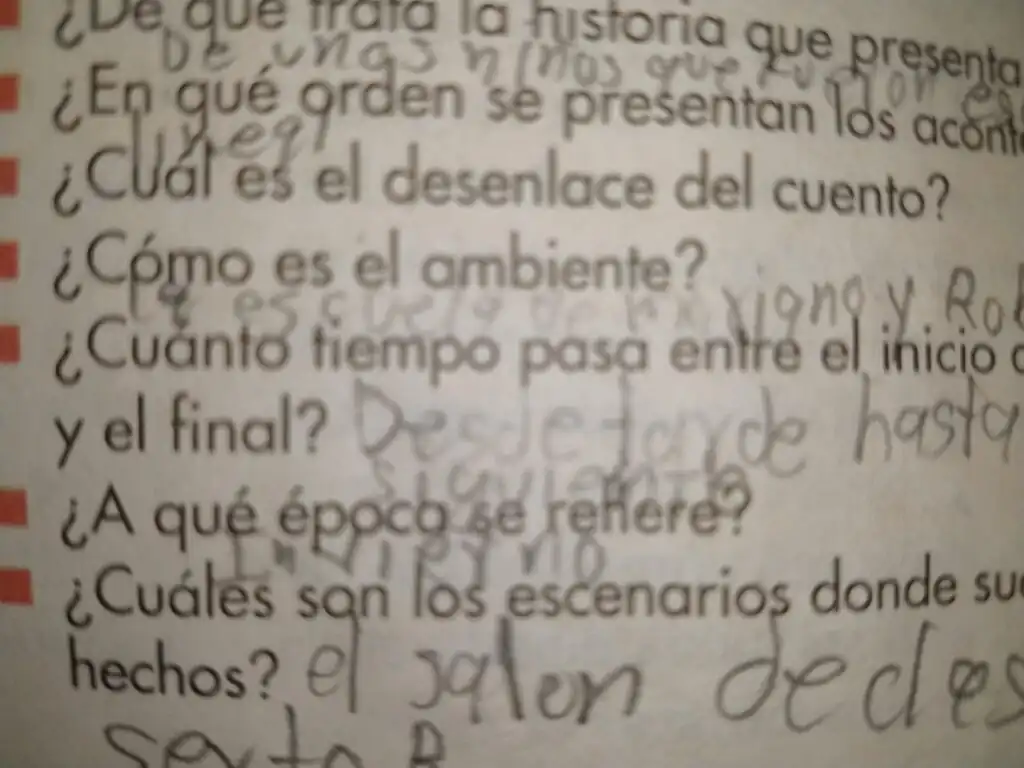 ¿De qué trata la historia que presenta
De unos niños que
¿En qué orden se presentan los aconte
¿Cuál es el desenlace del cuento?
¿Cómo es el ambiente?
escuela de y Rob
¿Cuánto tiempo pasa entre el inicio
y el final? Desde tarde hasta
siguiente
¿A qué época se refiere?
Invierno
¿Cuáles son los escenarios donde su
hechos? el salon de cles
sexto B